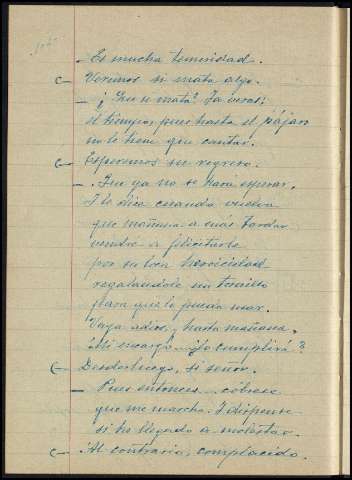 — Es mucha temeridad.
C— Veremos si mata algo.
— ¿Que si mata? Ya verás!
el tiempo, pues hasta el pájaro
no le tiene que cantar.
C— Esperemos su regreso.
— Que ya no se hará esperar.
Y le dice cuando vuelva
que mañana a más tardar
vendré a felicitarle
por su loca heroicidad
regalándole un tornillo
para que le pueda usar.
Vaya adios, y hasta mañana.
¿Mi encargo... lo cumplirá?
C— Desde luego, si señor.
— Pues entonces... cóbrese
que me marcho. Y dispense
si he llegado a molestar.
C— Al contrario, complacido.